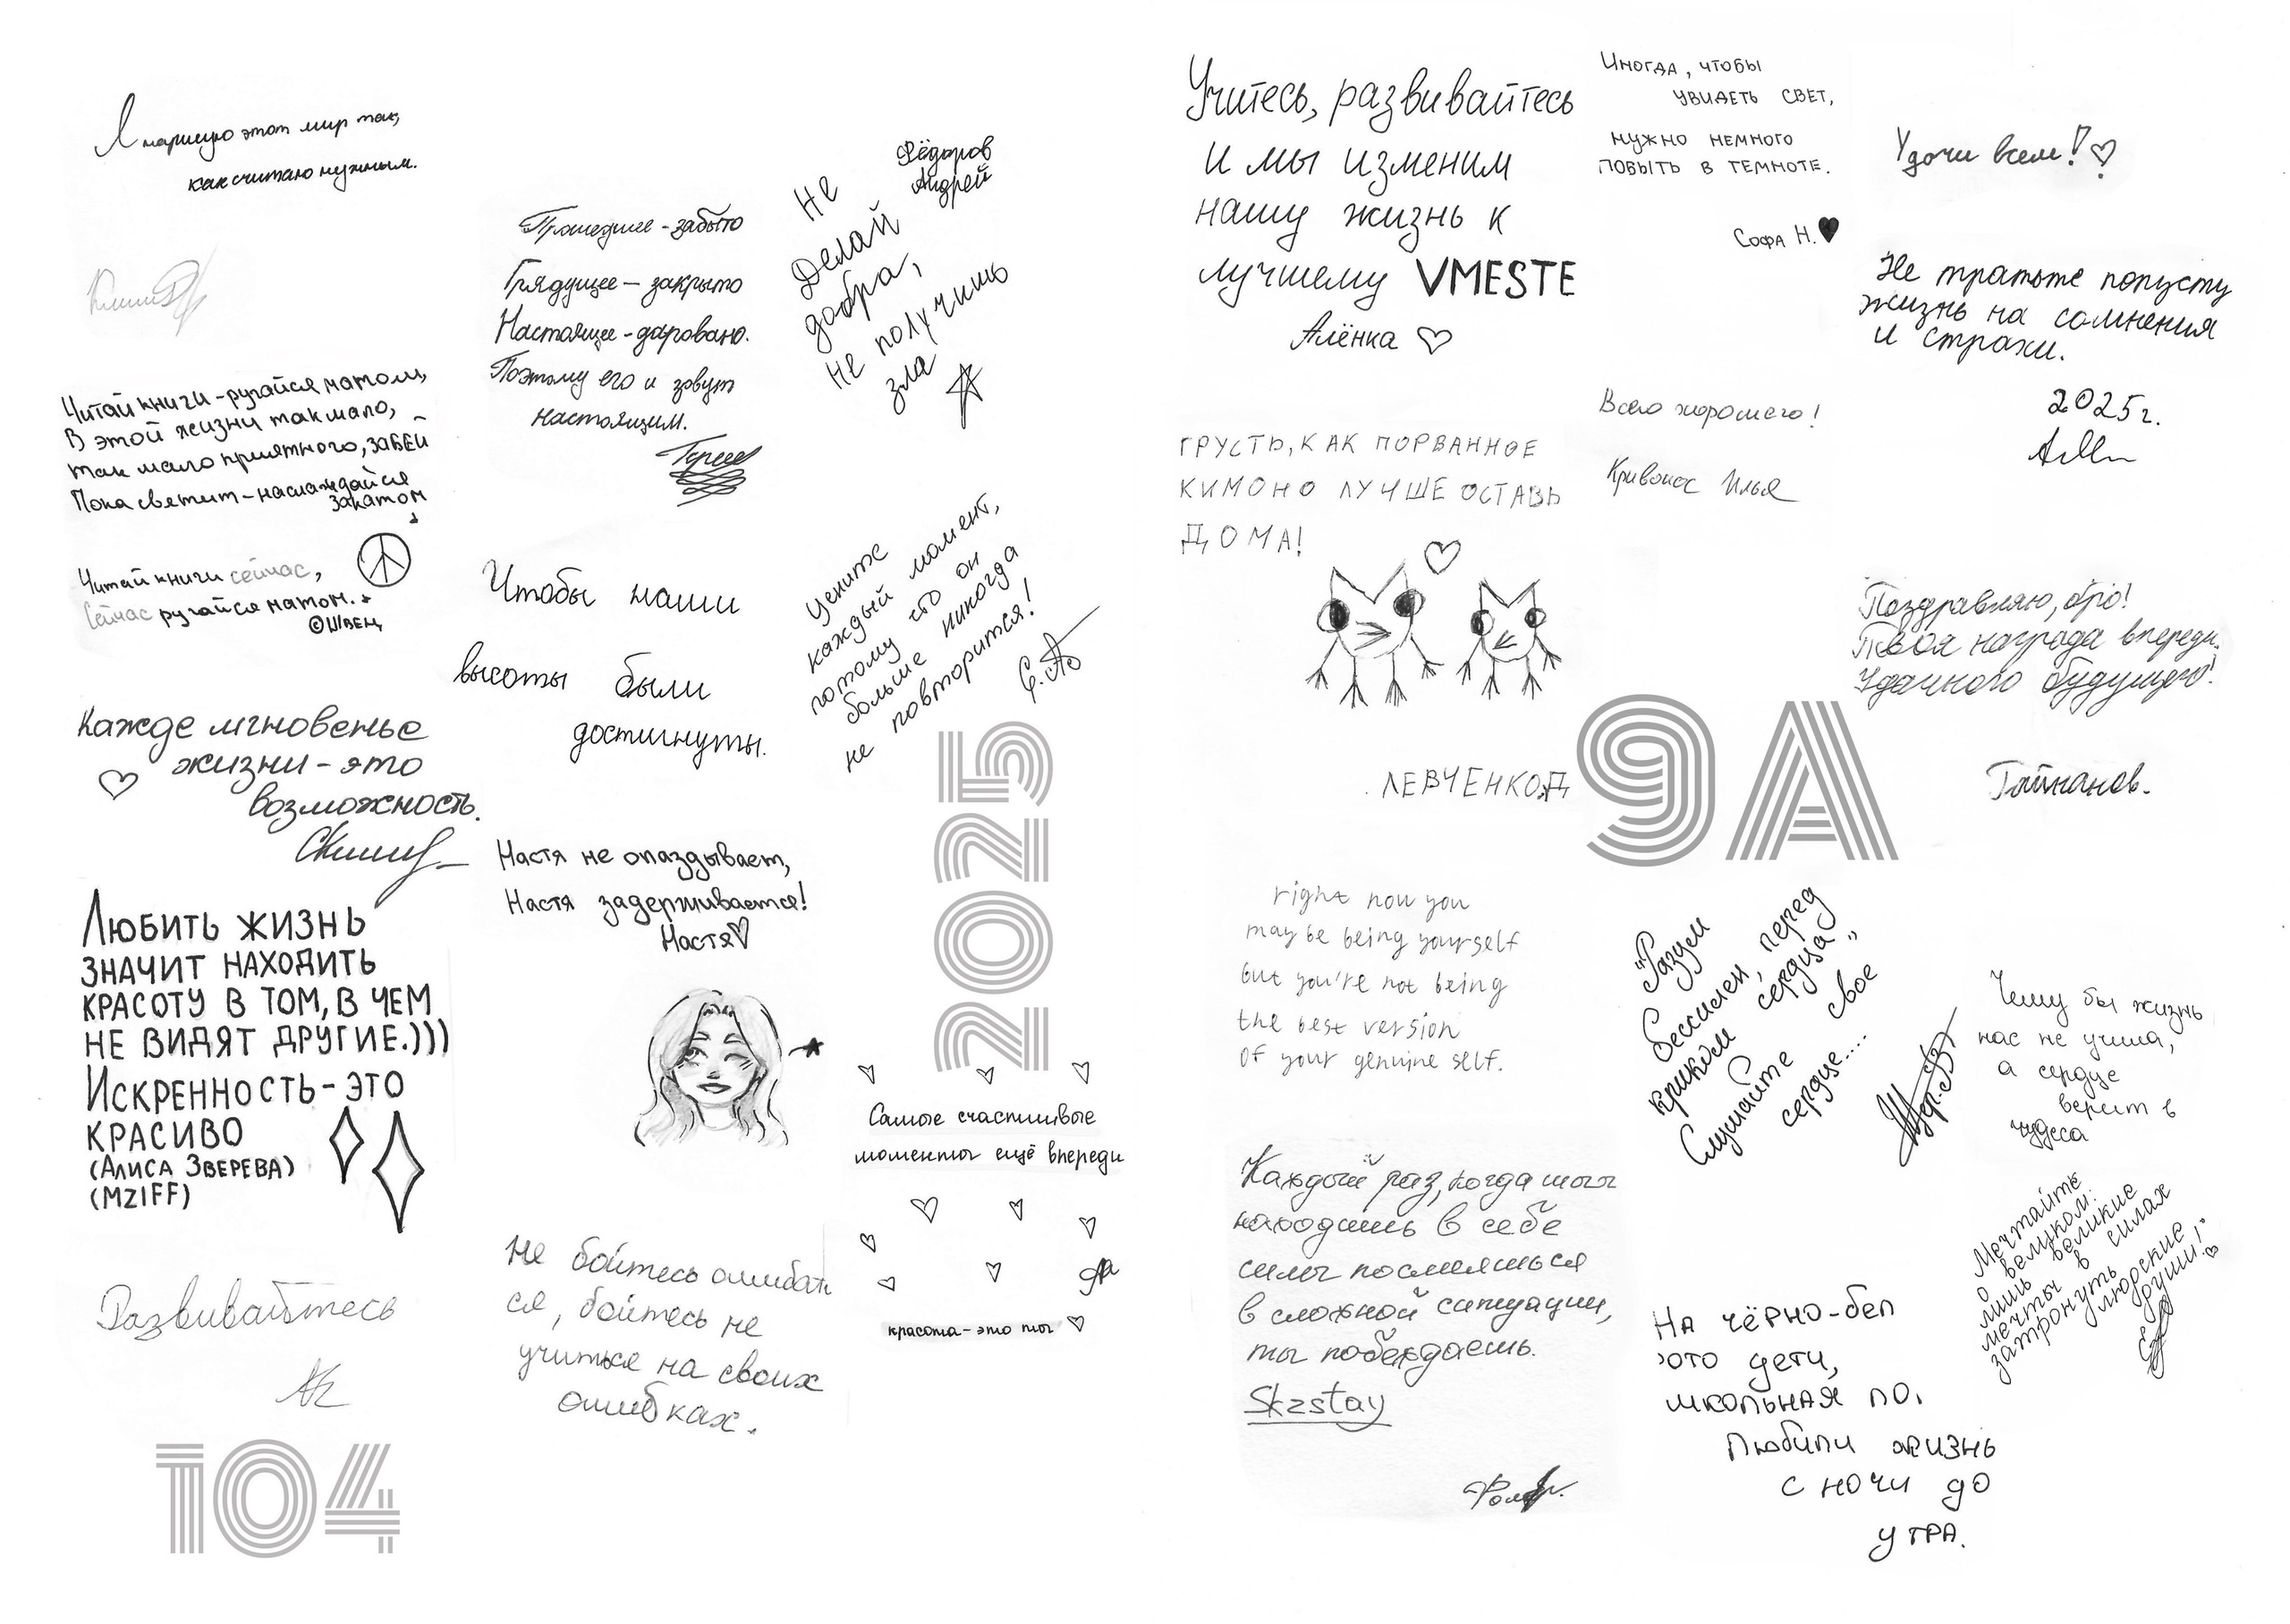 Я нарисую этот мир так,
как считаю нужным.
Читай книги - ругайся матом,
В этой жизни так мало,
так мало приятного, ЗАБЕЙ
Пока светит - наслаждайся
закатом
Читай книги сейчас,
Сейчас ругайся матом.
©ШВЕЦ
Кажде мгновенье
жизни - это
возможность.
ЛЮБИТЬ ЖИЗНЬ
ЗНАЧИТ НАХОДИТЬ
КРАСОТУ В ТОМ, В ЧЕМ
НЕ ВИДЯТ ДРУГИЕ.)))
ИСКРЕННОСТЬ - ЭТО
КРАСИВО
(АЛИСА ЗВЕРЕВА)
(MZIFF)
Развивайтесь
104
Прошедшее - забыто
Грядущее - закрыто
Настоящее - даровано.
Поэтому его и зовут
настоящим.
Чтобы наши
высоты были
достигнуты.
Настя не опаздывает,
Настя задерживается!
Настя
Не бойтесь ошибать
ся, бойтесь не
учиться на своих
ошибках.
Фёдоров
Андрей
Не
Делай
добра,
не получишь
зла
Цените
каждый момент,
потому что он
больше никогда
не повторится!
2025
Самые счастливые
моменты ещё впереди
красота - это ты
Учитесь, развивайтесь
и мы изменим
нашу жизнь к
лучшему VMESTE
Алёнка
ГРУСТЬ, КАК ПОРВАННОЕ
КИМОНО ЛУЧШЕ ОСТАВЬ
ДОМА!
ЛЕВЧЕНКО Д
right now you
may be being yourself
but you're not being
the best version
of your genuine self.
Каждый раз, когда ты
находишь в себе
силы посмеяться
в сложной ситуации,
ты побеждаешь.
Skzstay
Иногда, чтобы
увидеть свет,
нужно немного
побыть в темноте.
Софа Н.
Всего хорошего!
Кривонос Илья
9А
"Разум
бессилен, перед
криком сердца"
Слушайте свое
сердце....
На чёрно-бел
ото дети,
школьная по,
Любили жизнь
с ночи до
утра.
Удачи всем!
Не тратьте попусту
жизнь на сомнения
и страхи.
2025г.
Поздравляю, бро!
Твоя награда впереди.
Удачного будущего!
Чему бы жизнь
нас не учила,
а сердце
верит в
чудеса
Мечтайте
о великом:
лишь великие
мечты в силах
затронуть людские
души!